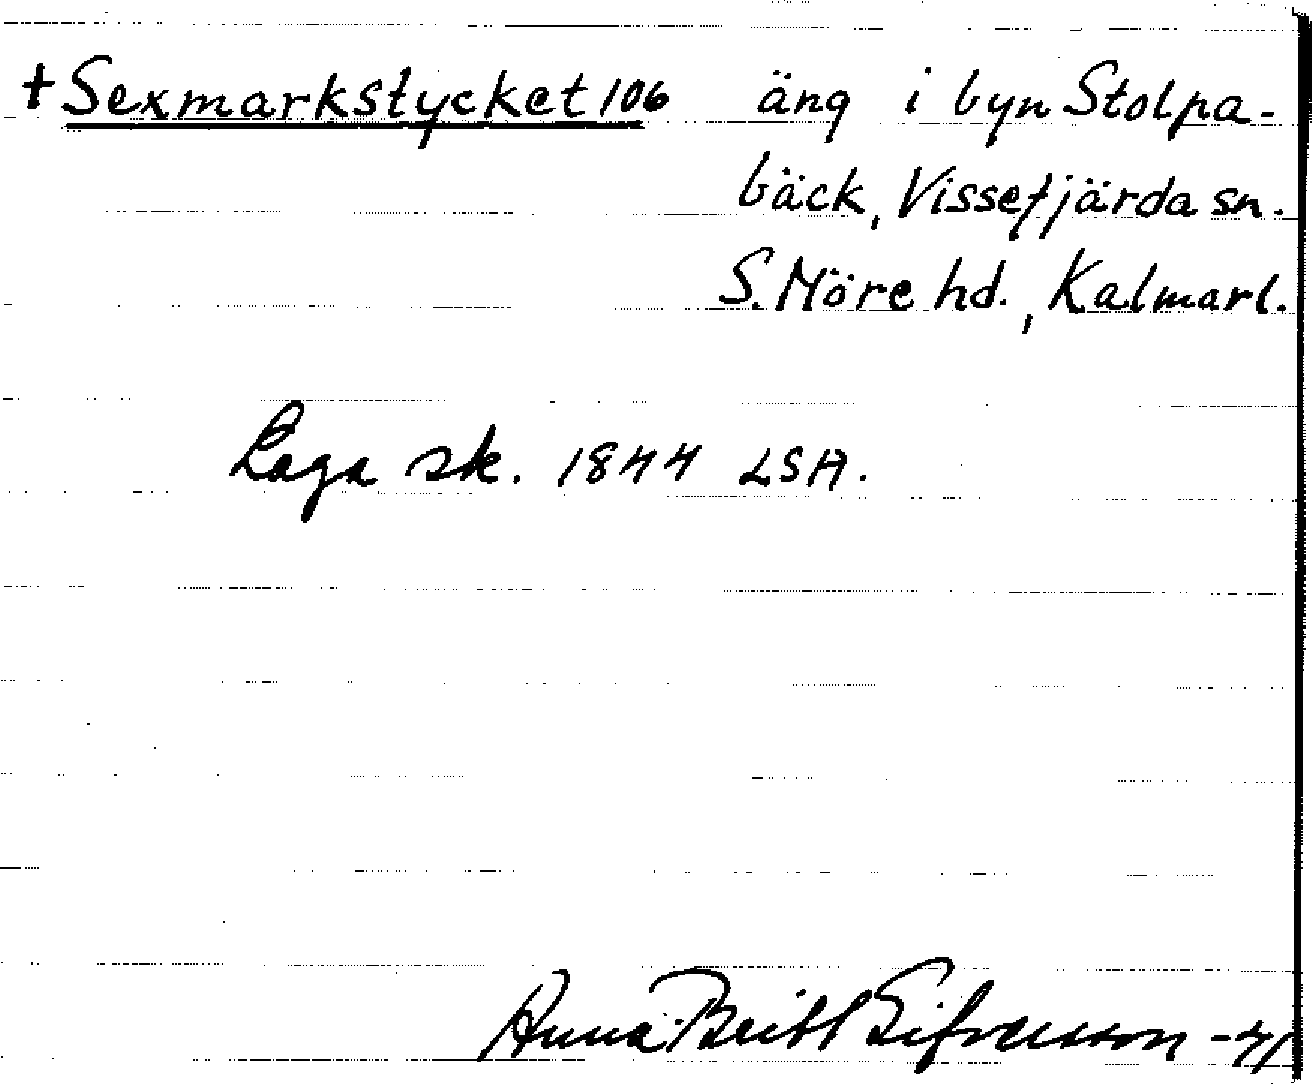 + Sexmarkstycket 106 äng i byn Stolpa-
bäck, Vissefjärda sn.
S. Möre hd., Kalmar l.
Laga sk. 1844 LSA.
Anna-Britt Sifvesson -71